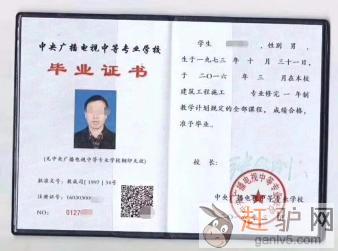 中央广播电视中等专业学校
毕业证书
(无中央广播电视中等专业学校钢印无效)
批准文号：教成司[1997]34号
注册证号：16030300
NO: 0127
学生 性别 男，
生于一九七三年 十月 三十一日，
于 二〇一六 年 三 月在本校
建筑工程施工 专业修完 一 年制
教学计划规定的全部课程，成绩合格，
准予毕业。
校 长：
中央广播电视中等专业学校
赶驴网
www.ganlv5.com